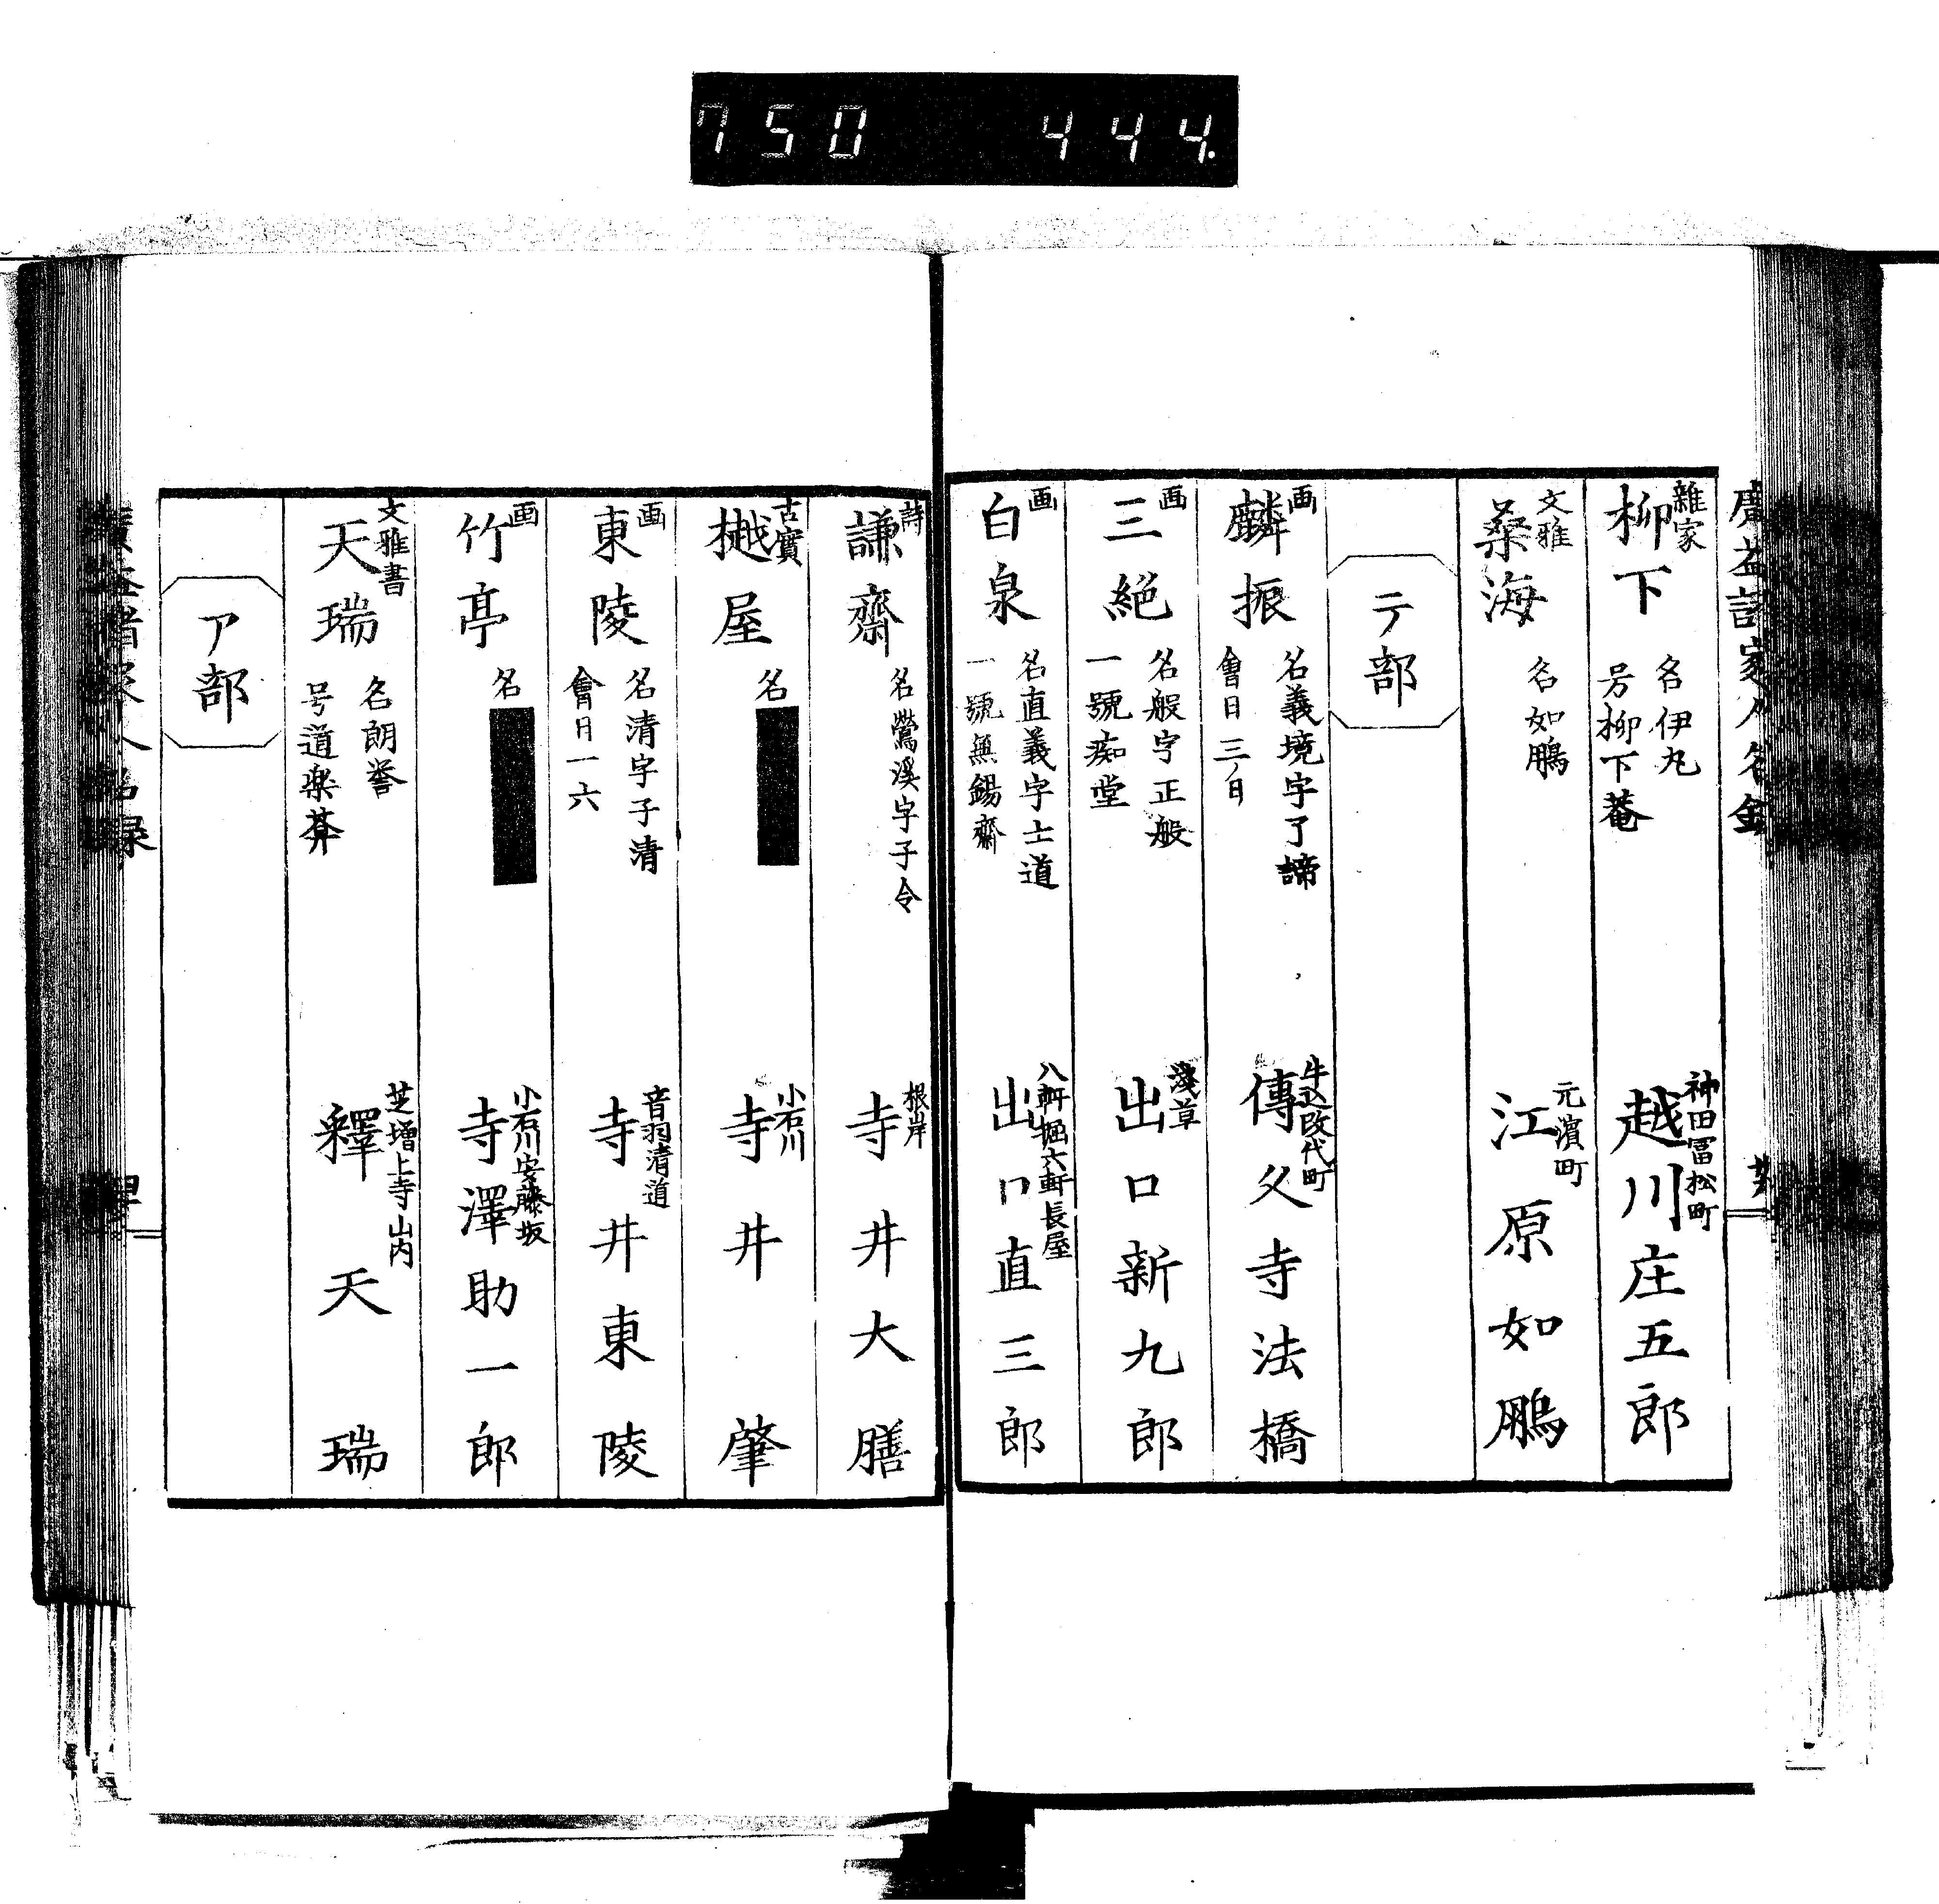 750 444.
廣益諸家人名録
雜家
柳下
名伊丸
号柳下菴
神田冨松町
越川庄五郎
文雅
桑海
名如鵬
元濱町
江原如鵬
テ部
画
麟振
名義境字了諦
會日三ノ日
牛込改代町
傳久寺法橋
画
三絶
名般字正般
一號痴堂
淺草
出口新九郎
画
白泉
名直義字士道
一號無錫齋
八軒堀六軒長屋
出口直三郎
詩
謙齋
名鶯溪字子令
根岸
寺井大膳
古實
樾屋
名
小石川
寺井肇
画
東陵
名清字子清
會日一六
音羽清道
寺井東陵
画
竹亭
名
小石川安藤坂
寺澤助一郎
文雅書
天瑞
名朗誉
号道楽菴
芝増上寺山内
釋天瑞
ア部
廣益諸家人名録